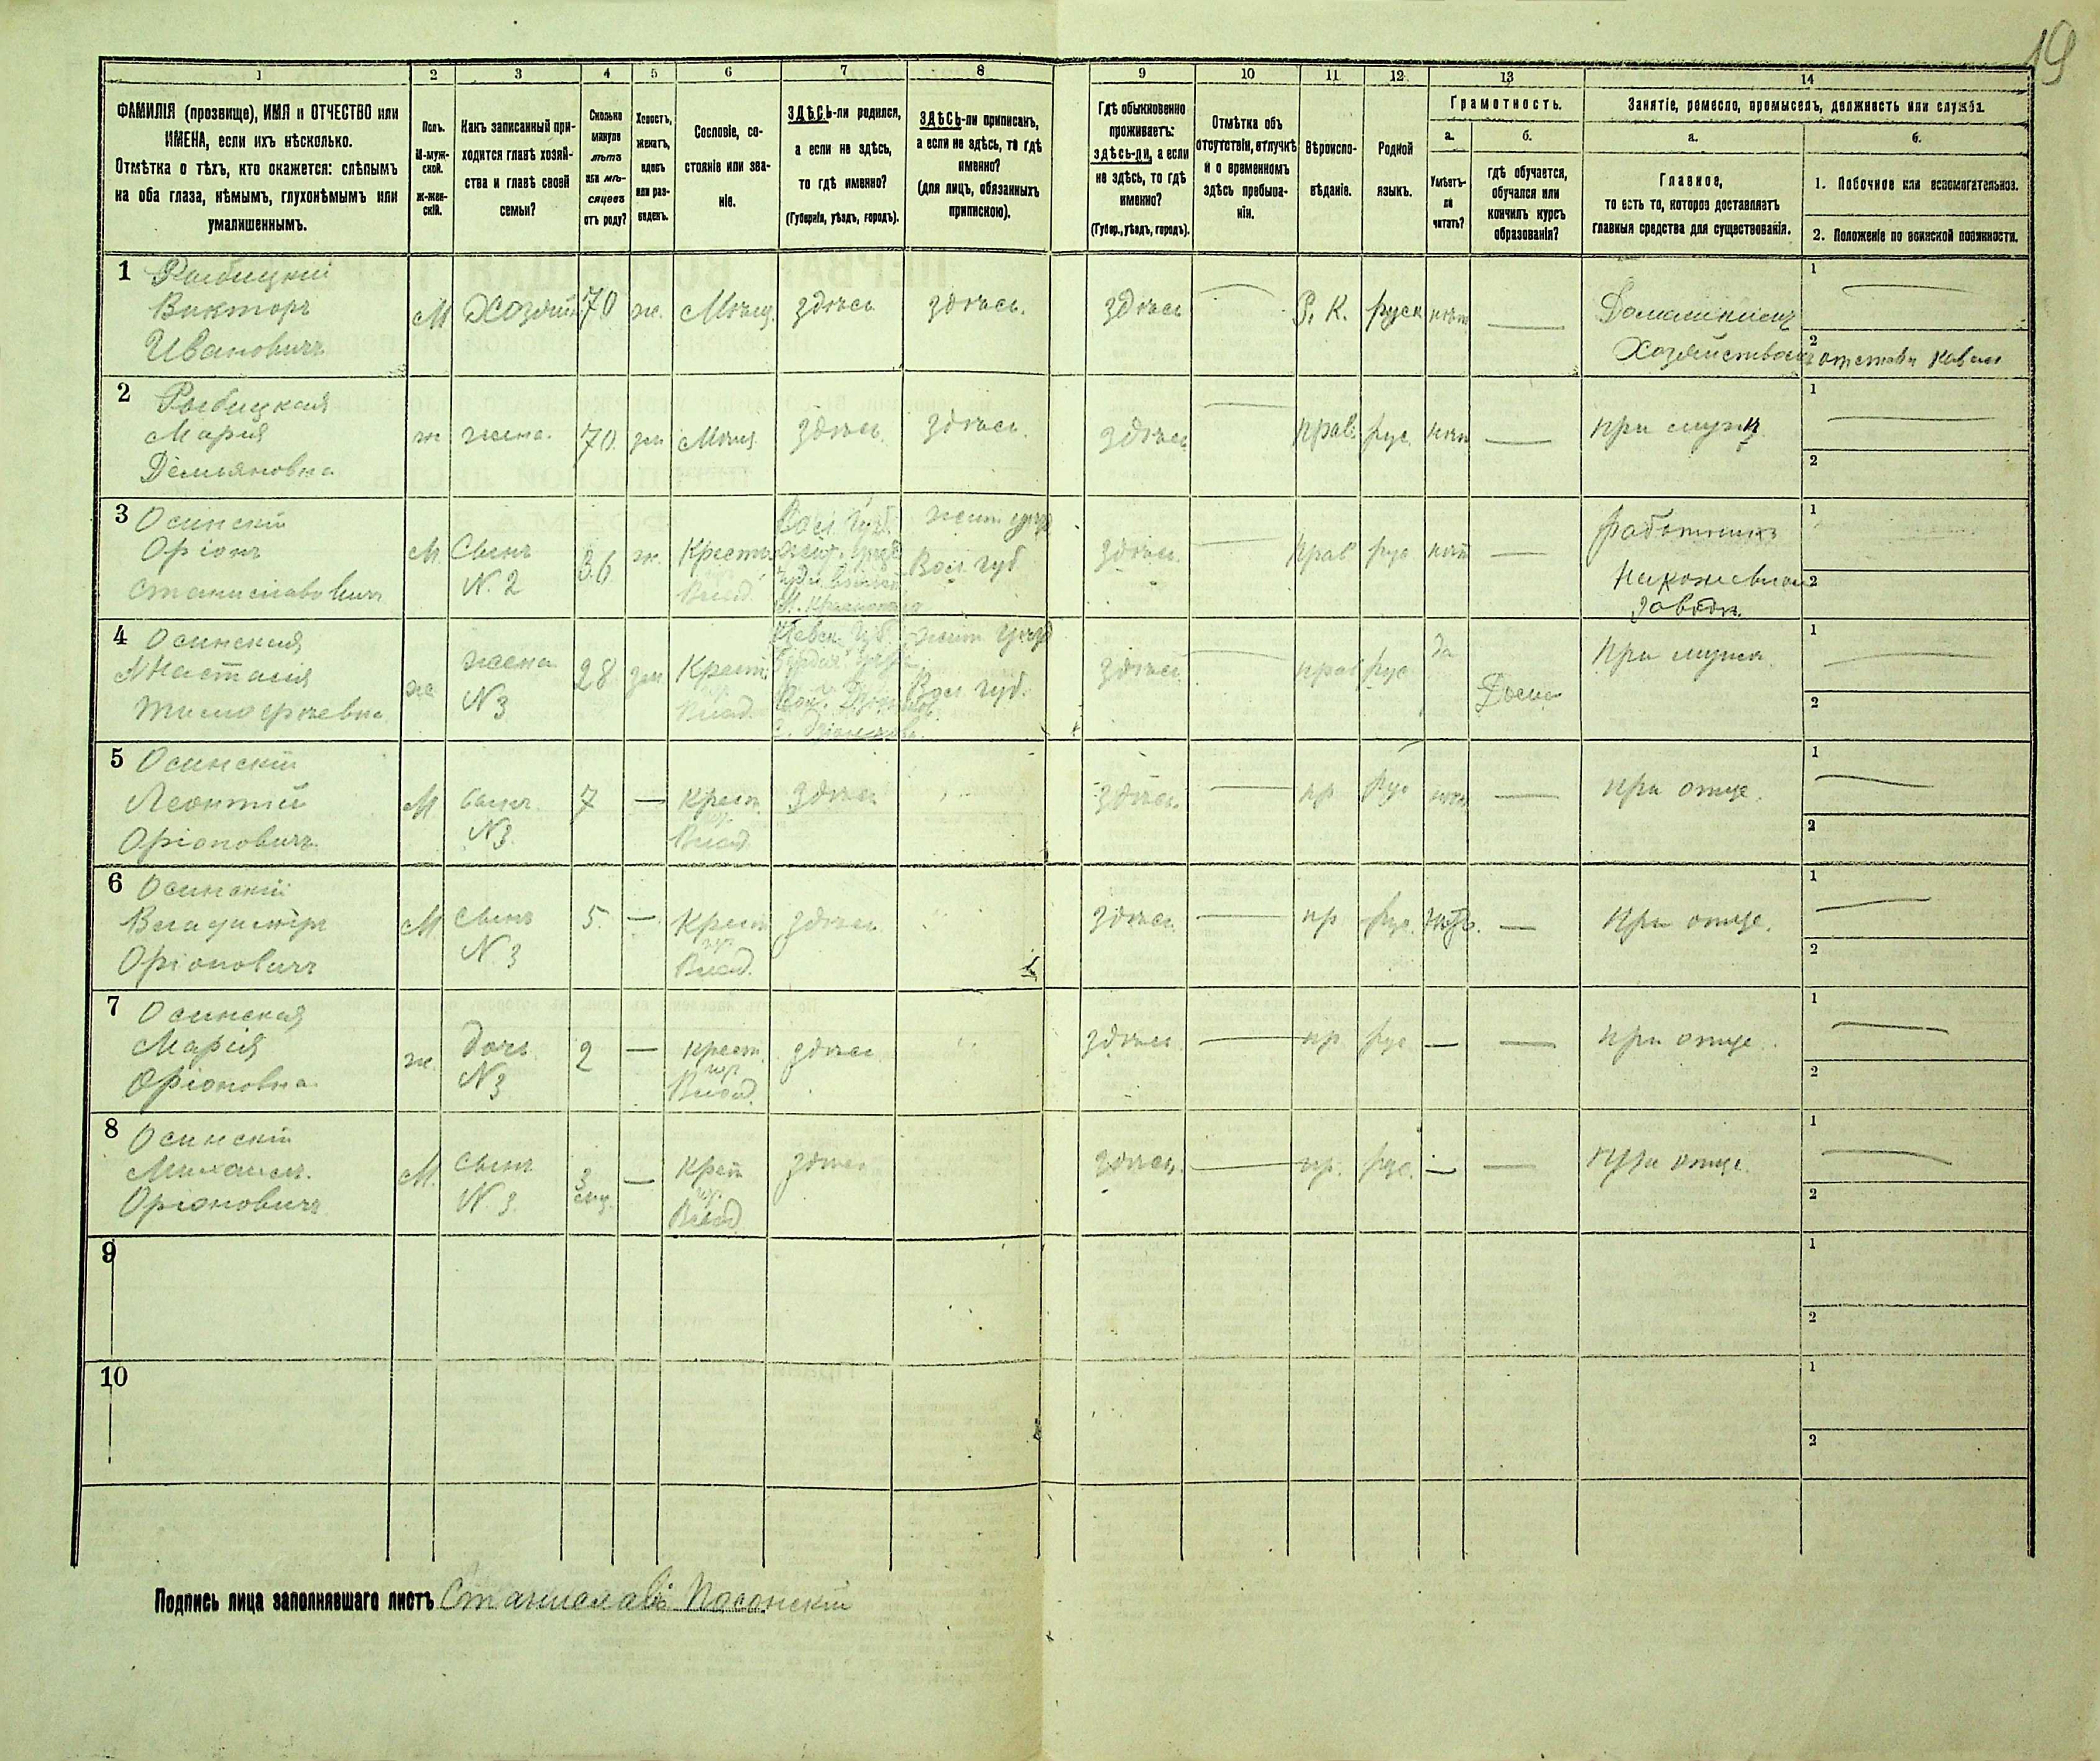 19
1 2 3 4 5 6 7 8 9 10 11 12 13 14
ФАМИЛІЯ (прозвище), ИМЯ и ОТЧЕСТВО или
ИМЕНА, если ихъ нѣсколько.
Отмѣтка о тѣхъ, кто окажется: слѣпымъ
на оба глаза, нѣмымъ, глухонѣмымъ или
умалишеннымъ.
Полъ.
М-муж-
ской.
Ж-жен-
скій.
Какъ записанный при-
ходится главѣ хозяй-
ства и главѣ своей
семьи?
Сколько
минуло
лѣтъ
или мѣ-
сяцевъ
отъ роду?
Холостъ,
женатъ,
вдовъ
или раз-
веденъ.
Сословіе, со-
стояніе или зва-
ніе.
ЗДѢСЬ-ли родился,
а если не здѣсь,
то гдѣ именно?
(Губернія, уѣздъ, городъ).
ЗДѢСЬ-ли приписанъ,
а если не здѣсь, то гдѣ
именно?
(для лицъ, обязанныхъ
припискою).
Гдѣ обыкновенно
проживаетъ:
здѣсь-ли, а если
не здѣсь, то гдѣ
именно?
(Губер., уѣздъ, городъ).
Отмѣтка объ
отсутствіи, отлучкѣ
и о временномъ
здѣсь пребыва-
ніи.
Вѣроиспо-
вѣданіе.
Родной
языкъ.
Грамотность.
а.
Умѣетъ-
ли
читать?
б.
гдѣ обучается,
обучался или
кончилъ курсъ
образованія?
Занятіе, ремесло, промыселъ, должность или служба.
а.
Главное,
то есть то, которое доставляетъ
главныя средства для существованія.
б.
1. Побочное или вспомогательное.
2. Положеніе по воинской повинности.
1
Викторъ
Ивановичъ
М
70
ж.
Мѣщ.
здѣсь
здѣсь.
здѣсь
Р. К.
руск
нѣт
1
2
2 Рыбицкая
Марія
Демьяновна
ж
жена.
70.
зам
Мѣщ
здѣсь.
здѣсь.
здѣсь
прав.
рус.
нѣт
при мужѣ
1
2
3 Осинскій
Оріонъ
Станиславовичъ
М.
Сынъ
N. 2
36
ж.
Крест.
Влад.
Вол. губ.
здѣсь.
прав
рус
нѣт
работникъ
1
2
4 Осинская
Анастасія
Тимофѣевна
ж
жена
N 3
28
зам
Крест.
Влад.
Вол. губ.
здѣсь.
прав
рус
да
при мужѣ.
1
2
5 Осинскій
Леонтій
Оріоновичъ.
М
сынъ.
N 3.
7
—
крест.
Влад.
здѣсь
здѣсь.
пр
рус
нѣт
при отцѣ.
1
2
6 Осинскій
Владиміръ
Оріоновичъ
М.
Сынъ
N. 3
5.
—
Крест
Влад.
здѣсь
здѣсь.
пр
рус.
нѣт.
при отцѣ.
1
2
7 Осинская
Марія
Оріоновна
ж.
дочь
N 3
2
—
крест.
Влад.
здѣсь
здѣсь.
пр
рус
при отцѣ.
1
2
8 Осинскій
Михаилъ.
Оріоновичъ
М.
Сынъ
N. 3.
3
мц.
—
Крест
Влад
здѣсь
здѣсь.
пр.
рус.
при отцѣ.
1
2
9
1
2
10
1
2
Подпись лица заполнявшаго листъ Станиславъ